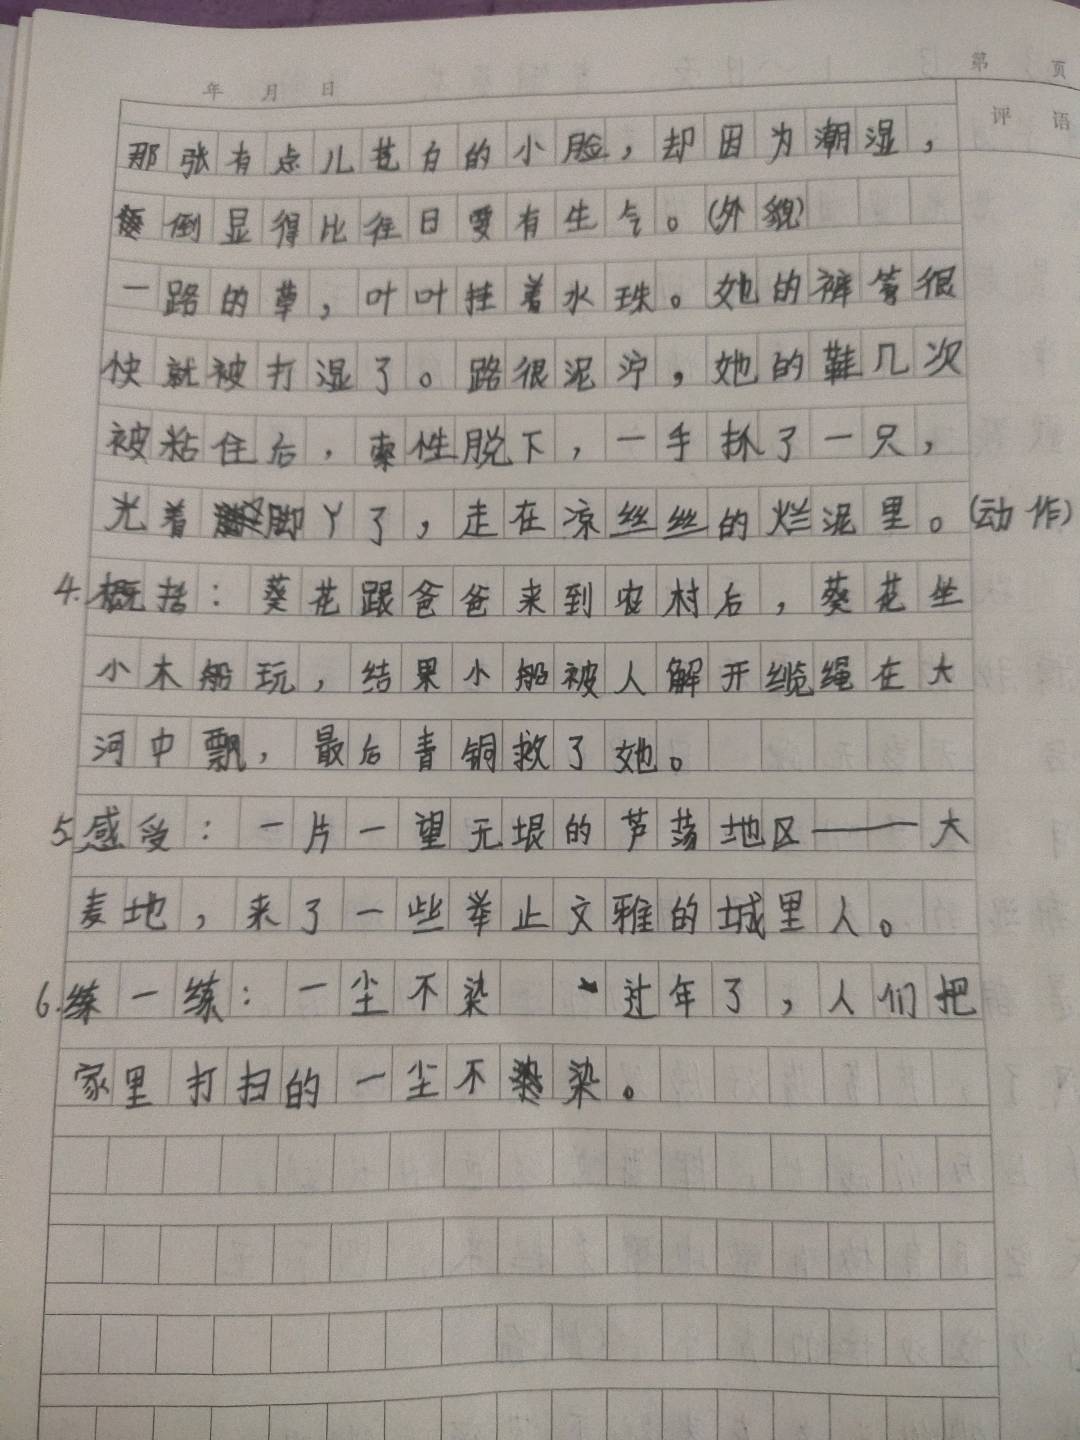 第 页
年 月 日
评 语
那张有点儿苍白的小脸，却因为潮湿，
倒显得比往日要有生气。(外貌)
一路的草，叶叶挂着水珠。她的裤管很
快就被打湿了。路很泥泞，她的鞋几次
被粘住后，索性脱下，一手抓了一只，
光着脚丫了，走在凉丝丝的烂泥里。(动作)
4.概括：葵花跟爸爸来到农村后，葵花坐
小木船玩，结果小船被人解开缆绳在大
河中飘，最后青铜救了她。
5.感受：一片一望无垠的芦荡地区——大
麦地，来了一些举止文雅的城里人。
6.练一练：一尘不染 过年了，人们把
家里打扫的一尘不染。